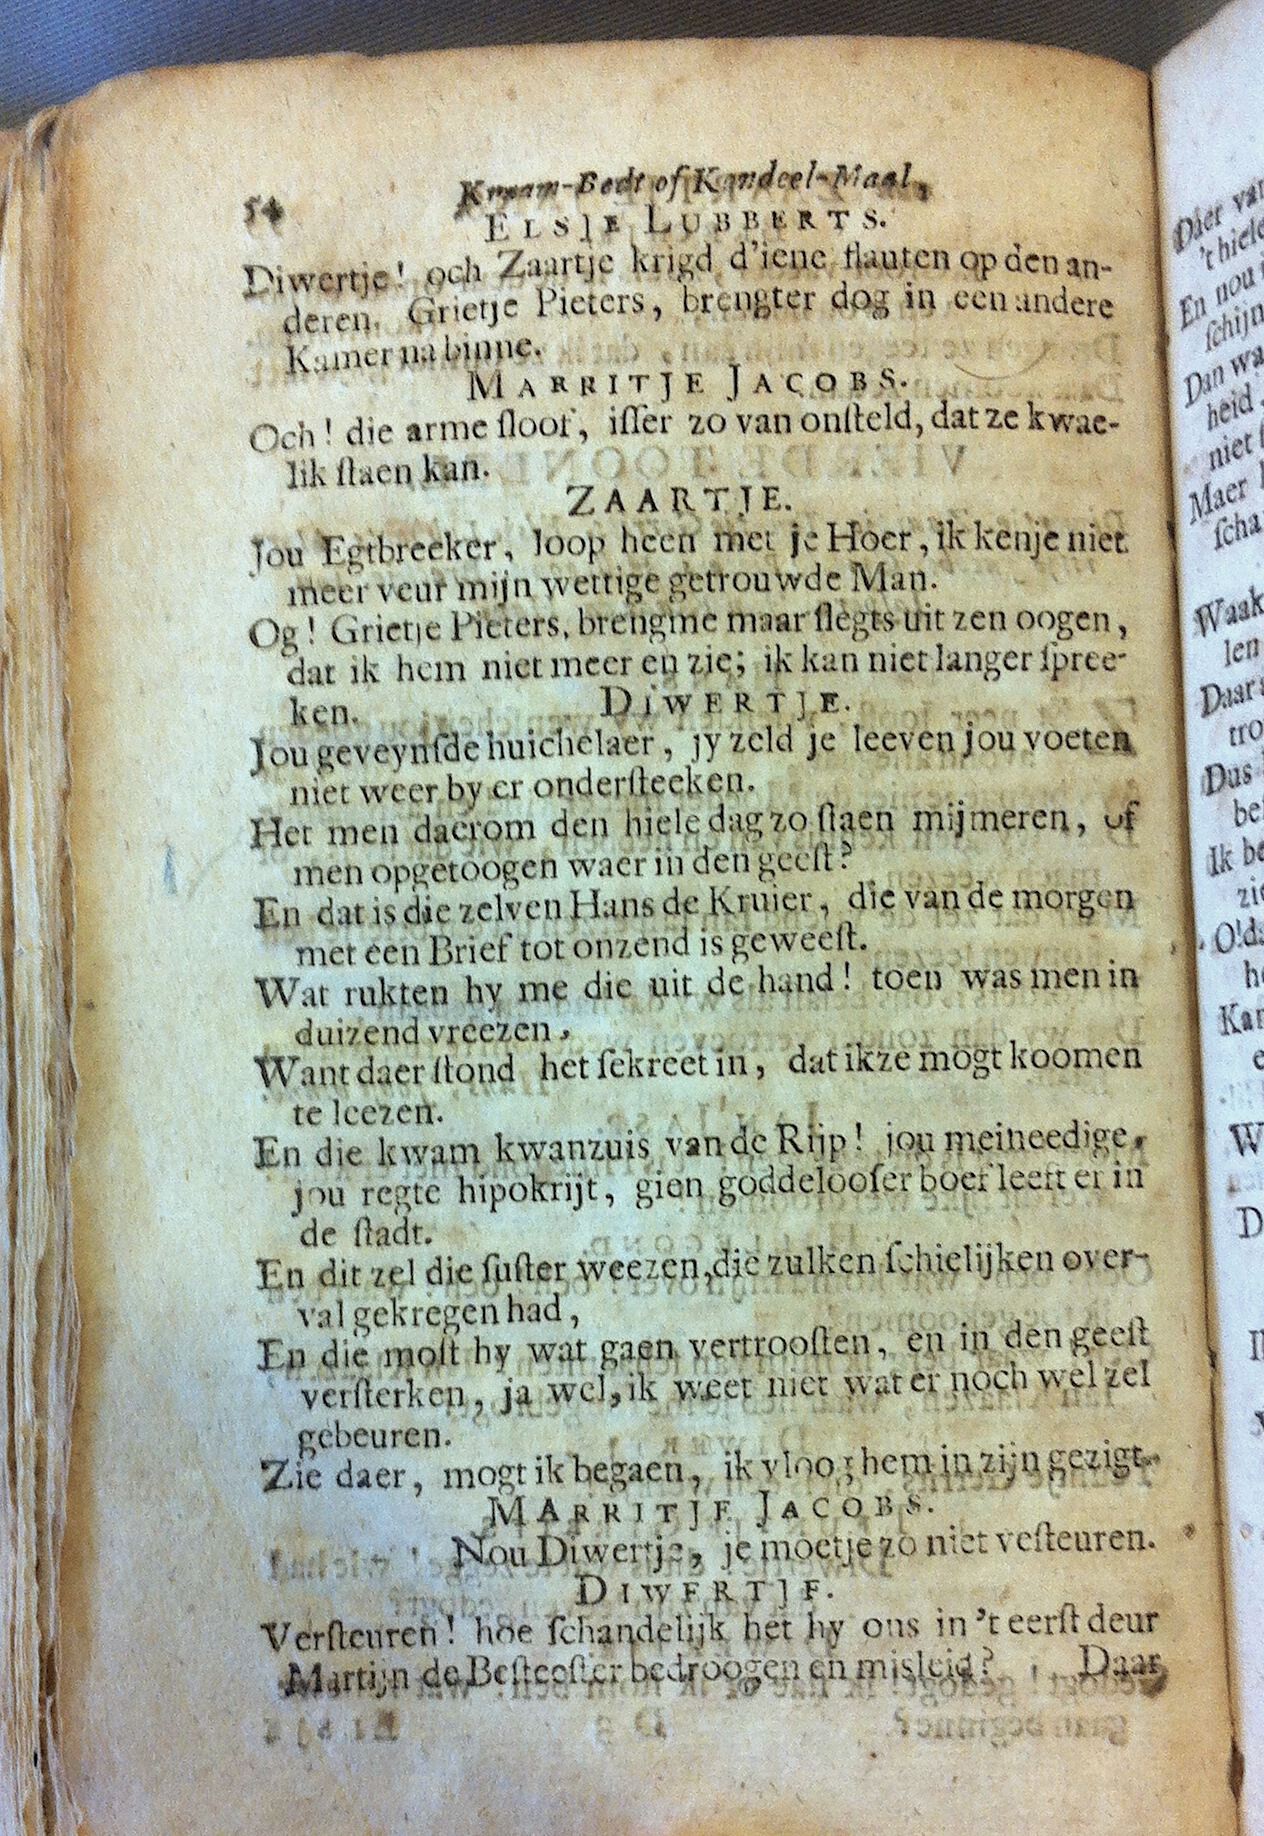 54 Kraam-Bedt of Kandeel-Maal,
ELSJE LUBBERTS.
Diwertje! och Zaartje krigd d'iene flauten op den an-
deren. Grietje Pieters, brengter dog in een andere
Kamer na binne.
MARRITJE JACOBS.
Och! die arme sloof, isser zo van onsteld, dat ze kwae-
lik staen kan.
ZAARTJE.
Jou Egtbreeker, loop heen met je Hoer, ik kenje niet
meer veur mijn wettige getrouwde Man.
Og! Grietje Pieters, brengme maar slegts uit zen oogen,
dat ik hem niet meer en zie; ik kan niet langer spree-
ken. DIWERTJE.
Jou geveynsde huichelaer, jy zeld je leeven jou voeten
niet weer by er ondersteeken.
Het men daerom den hiele dag zo staen mijmeren, of
men opgetoogen waer in den geest?
En dat is die zelven Hans de Kruier, die van de morgen
met een Brief tot onzend is geweest.
Wat rukten hy me die uit de hand! toen was men in
duizend vreezen,
Want daer stond het sekreet in, dat ikze mogt koomen
te leezen.
En die kwam kwanzuis van de Rijp! jou meineedige,
jou regte hipokrijt, gien goddelooser boef leeft er in
de stadt.
En dit zel die suster weezen, die zulken schielijken over-
val gekregen had,
En die most hy wat gaen vertroosten, en in den geest
versterken, ja wel, ik weet niet wat er noch wel zel
gebeuren.
Zie daer, mogt ik begaen, ik vloog hem in zijn gezigt.
MARRITJE JACOBS.
Nou Diwertje, je moetje zo niet vesteuren.
DIWERTJE.
Versteuren! hoe schandelijk het hy ons in 't eerst deur
Martijn de Besteester bedroogen en misleid? Daar
Daer van
't hiele
En nou
schijn
Dan wa
heid
niet
Maer
scha
Waak
len
Daar
tro
Dus
be
Ik be
zi
O! da
h
Kan
e
W
D